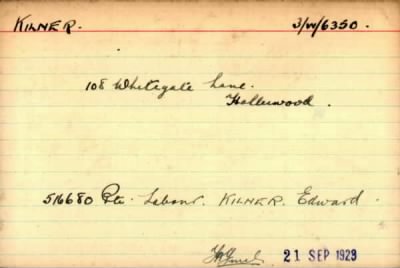 KILNER. 3/W/6350.
108 Whitegate Lane.
Hollinwood.
516680 Pte. Labour. KILNER. Edward.
21 SEP 1929